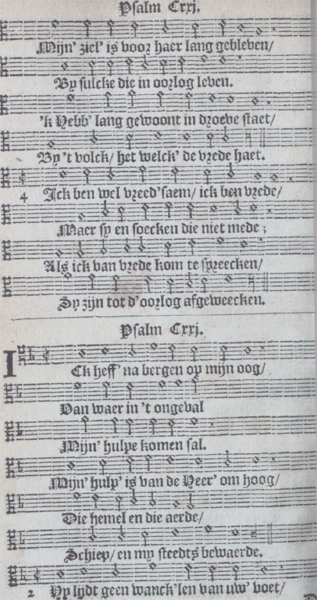 Psalm Cxxj.
Mijn' ziel' is voor haer lang gebleven/
By sulcke die in oorlog leven.
'k Hebb' lang gewoont in droeve staet/
By 't volck/ het welck' de vrede haet.
4 Ick ben wel vreed'saem/ ick ben vrede/
Maer sy en soecken die niet mede;
Als ick van vrede kom te spreecken/
Sy zijn tot d'oorlog afgeweecken.
Psalm Cxxj.
ICk heff' na bergen op mijn oog/
Van waer in 't ongeval
Mijn' hulpe komen sal.
Mijn' hulp' is van de Heer' om hoog/
Die hemel en die aerde/
Schiep/ en my steedts bewaerde.
2 Hy lydt geen wanck'len van uw' voet/